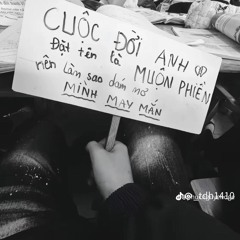 CUỘC ĐỜI ANH
Đặt tên là MUỘN PHIỀN
nên làm sao dám mơ
MÌNH MAY MẮN
@_tdh1410